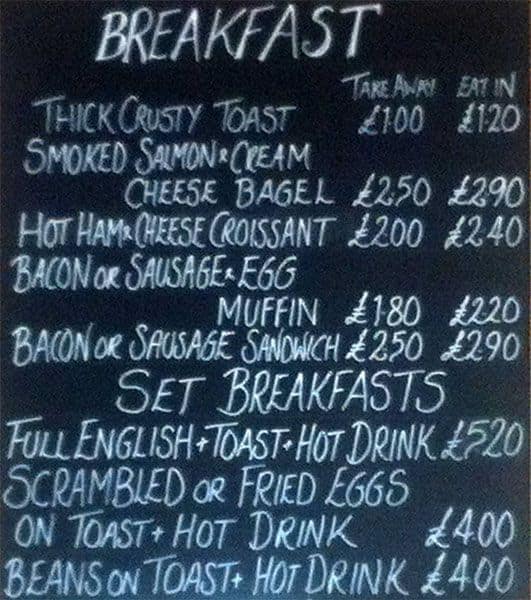 BREAKFAST
TAKE AWAY EAT IN
THICK CRUSTY TOAST £1.00 £1.20
SMOKED SALMON & CREAM
CHEESE BAGEL £2.50 £2.90
HOT HAM & CHEESE CROISSANT £2.00 £2.40
BACON OR SAUSAGE & EGG
MUFFIN £1.80 £2.20
BACON OR SAUSAGE SANDWICH £2.50 £2.90
SET BREAKFASTS
FULL ENGLISH + TOAST + HOT DRINK £5.20
SCRAMBLED OR FRIED EGGS
ON TOAST + HOT DRINK £4.00
BEANS ON TOAST + HOT DRINK £4.00